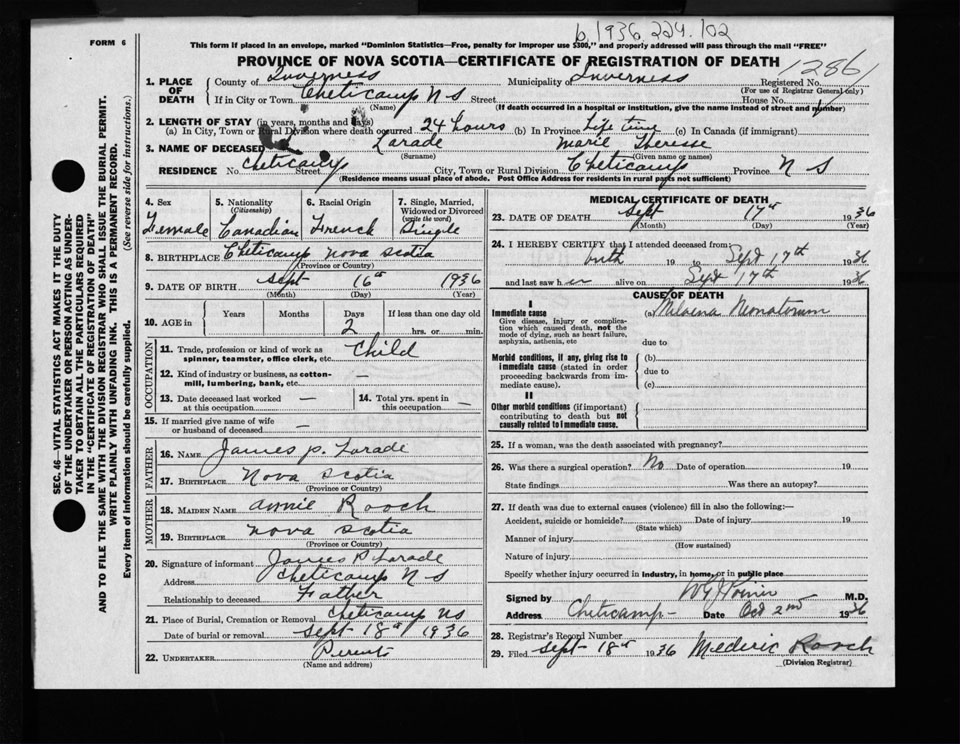 b 1936. 224. 102
FORM 6
This form if placed in an envelope, marked "Dominion Statistics—Free, penalty for improper use $300," and properly addressed will pass through the mail "FREE"
PROVINCE OF NOVA SCOTIA—CERTIFICATE OF REGISTRATION OF DEATH
1286
1. PLACE OF DEATH County of Inverness Municipality of Inverness Registered No.
(For use of Registrar General only)
If in City or Town Cheticamp N S Street House No.
(Name) (If death occurred in a hospital or institution, give the name instead of street and number)
2. LENGTH OF STAY (in years, months and days)
(a) In City, Town or Rural Division where death occurred 24 hours (b) In Province Life time (c) In Canada (if immigrant)
3. NAME OF DECEASED Larade Marie Theresse
(Surname) (Given name or names)
RESIDENCE No. Cheticamp Street City, Town or Rural Division Cheticamp Province N S
(Residence means usual place of abode. Post Office Address for residents in rural parts not sufficient)
4. Sex 5. Nationality (Citizenship) 6. Racial Origin 7. Single, Married, Widowed or Divorced (write the word)
Female Canadian French Single
8. BIRTHPLACE Cheticamp Nova Scotia
(Province or Country)
9. DATE OF BIRTH Sept 16th 1936
(Month) (Day) (Year)
10. AGE in Years Months Days If less than one day old
2 hrs. or min.
OCCUPATION
11. Trade, profession or kind of work as spinner, teamster, office clerk, etc. Child
12. Kind of industry or business, as cotton-mill, lumbering, bank, etc. —
13. Date deceased last worked at this occupation — 14. Total yrs. spent in this occupation —
15. If married give name of wife or husband of deceased —
FATHER
16. Name James P. Larade
17. BIRTHPLACE Nova Scotia
(Province or Country)
MOTHER
18. MAIDEN NAME Annie Rooch
19. BIRTHPLACE Nova Scotia
(Province or Country)
20. Signature of informant James P Larade
Address Cheticamp N S
Relationship to deceased Father
21. Place of Burial, Cremation or Removal Cheticamp NS
Date of burial or removal Sept 18th 1936
22. UNDERTAKER Perents
(Name and address)
MEDICAL CERTIFICATE OF DEATH
23. DATE OF DEATH Sept 17th 1936
(Month) (Day) (Year)
24. I HEREBY CERTIFY that I attended deceased from
birth 19 to Sept 17th 1936
and last saw her alive on Sept 17th 1936
CAUSE OF DEATH
I
Immediate cause (a) Neonatorum
Give disease, injury or complication which caused death, not the mode of dying, such as heart failure, asphyxia, asthenia, etc
due to
Morbid conditions, if any, giving rise to immediate cause (stated in order proceeding backwards from immediate cause). (b)
due to
(c)
II
Other morbid conditions (if important) contributing to death but not causally related to immediate cause.
25. If a woman, was the death associated with pregnancy?
26. Was there a surgical operation? No Date of operation 19
State findings Was there an autopsy?
27. If death was due to external causes (violence) fill in also the following:—
Accident, suicide or homicide? Date of injury 19
(State which)
Manner of injury
(How sustained)
Nature of injury
Specify whether injury occurred in industry, in home, or in public place
Signed by M.D.
Address Cheticamp Date Oct 2nd 1936
28. Registrar's Record Number
29. Filed Sept 18th 1936 Mederic Rooch
(Division Registrar)
SEC. 46—VITAL STATISTICS ACT MAKES IT THE DUTY
OF THE UNDERTAKER OR PERSON ACTING AS UNDER-
TAKER TO OBTAIN ALL THE PARTICULARS REQUIRED
IN THE "CERTIFICATE OF REGISTRATION OF DEATH"
AND TO FILE THE SAME WITH THE DIVISION REGISTRAR WHO SHALL ISSUE THE BURIAL PERMIT.
WRITE PLAINLY WITH UNFADING INK. THIS IS A PERMANENT RECORD.
Every item of information should be carefully supplied. (See reverse side for instructions.)